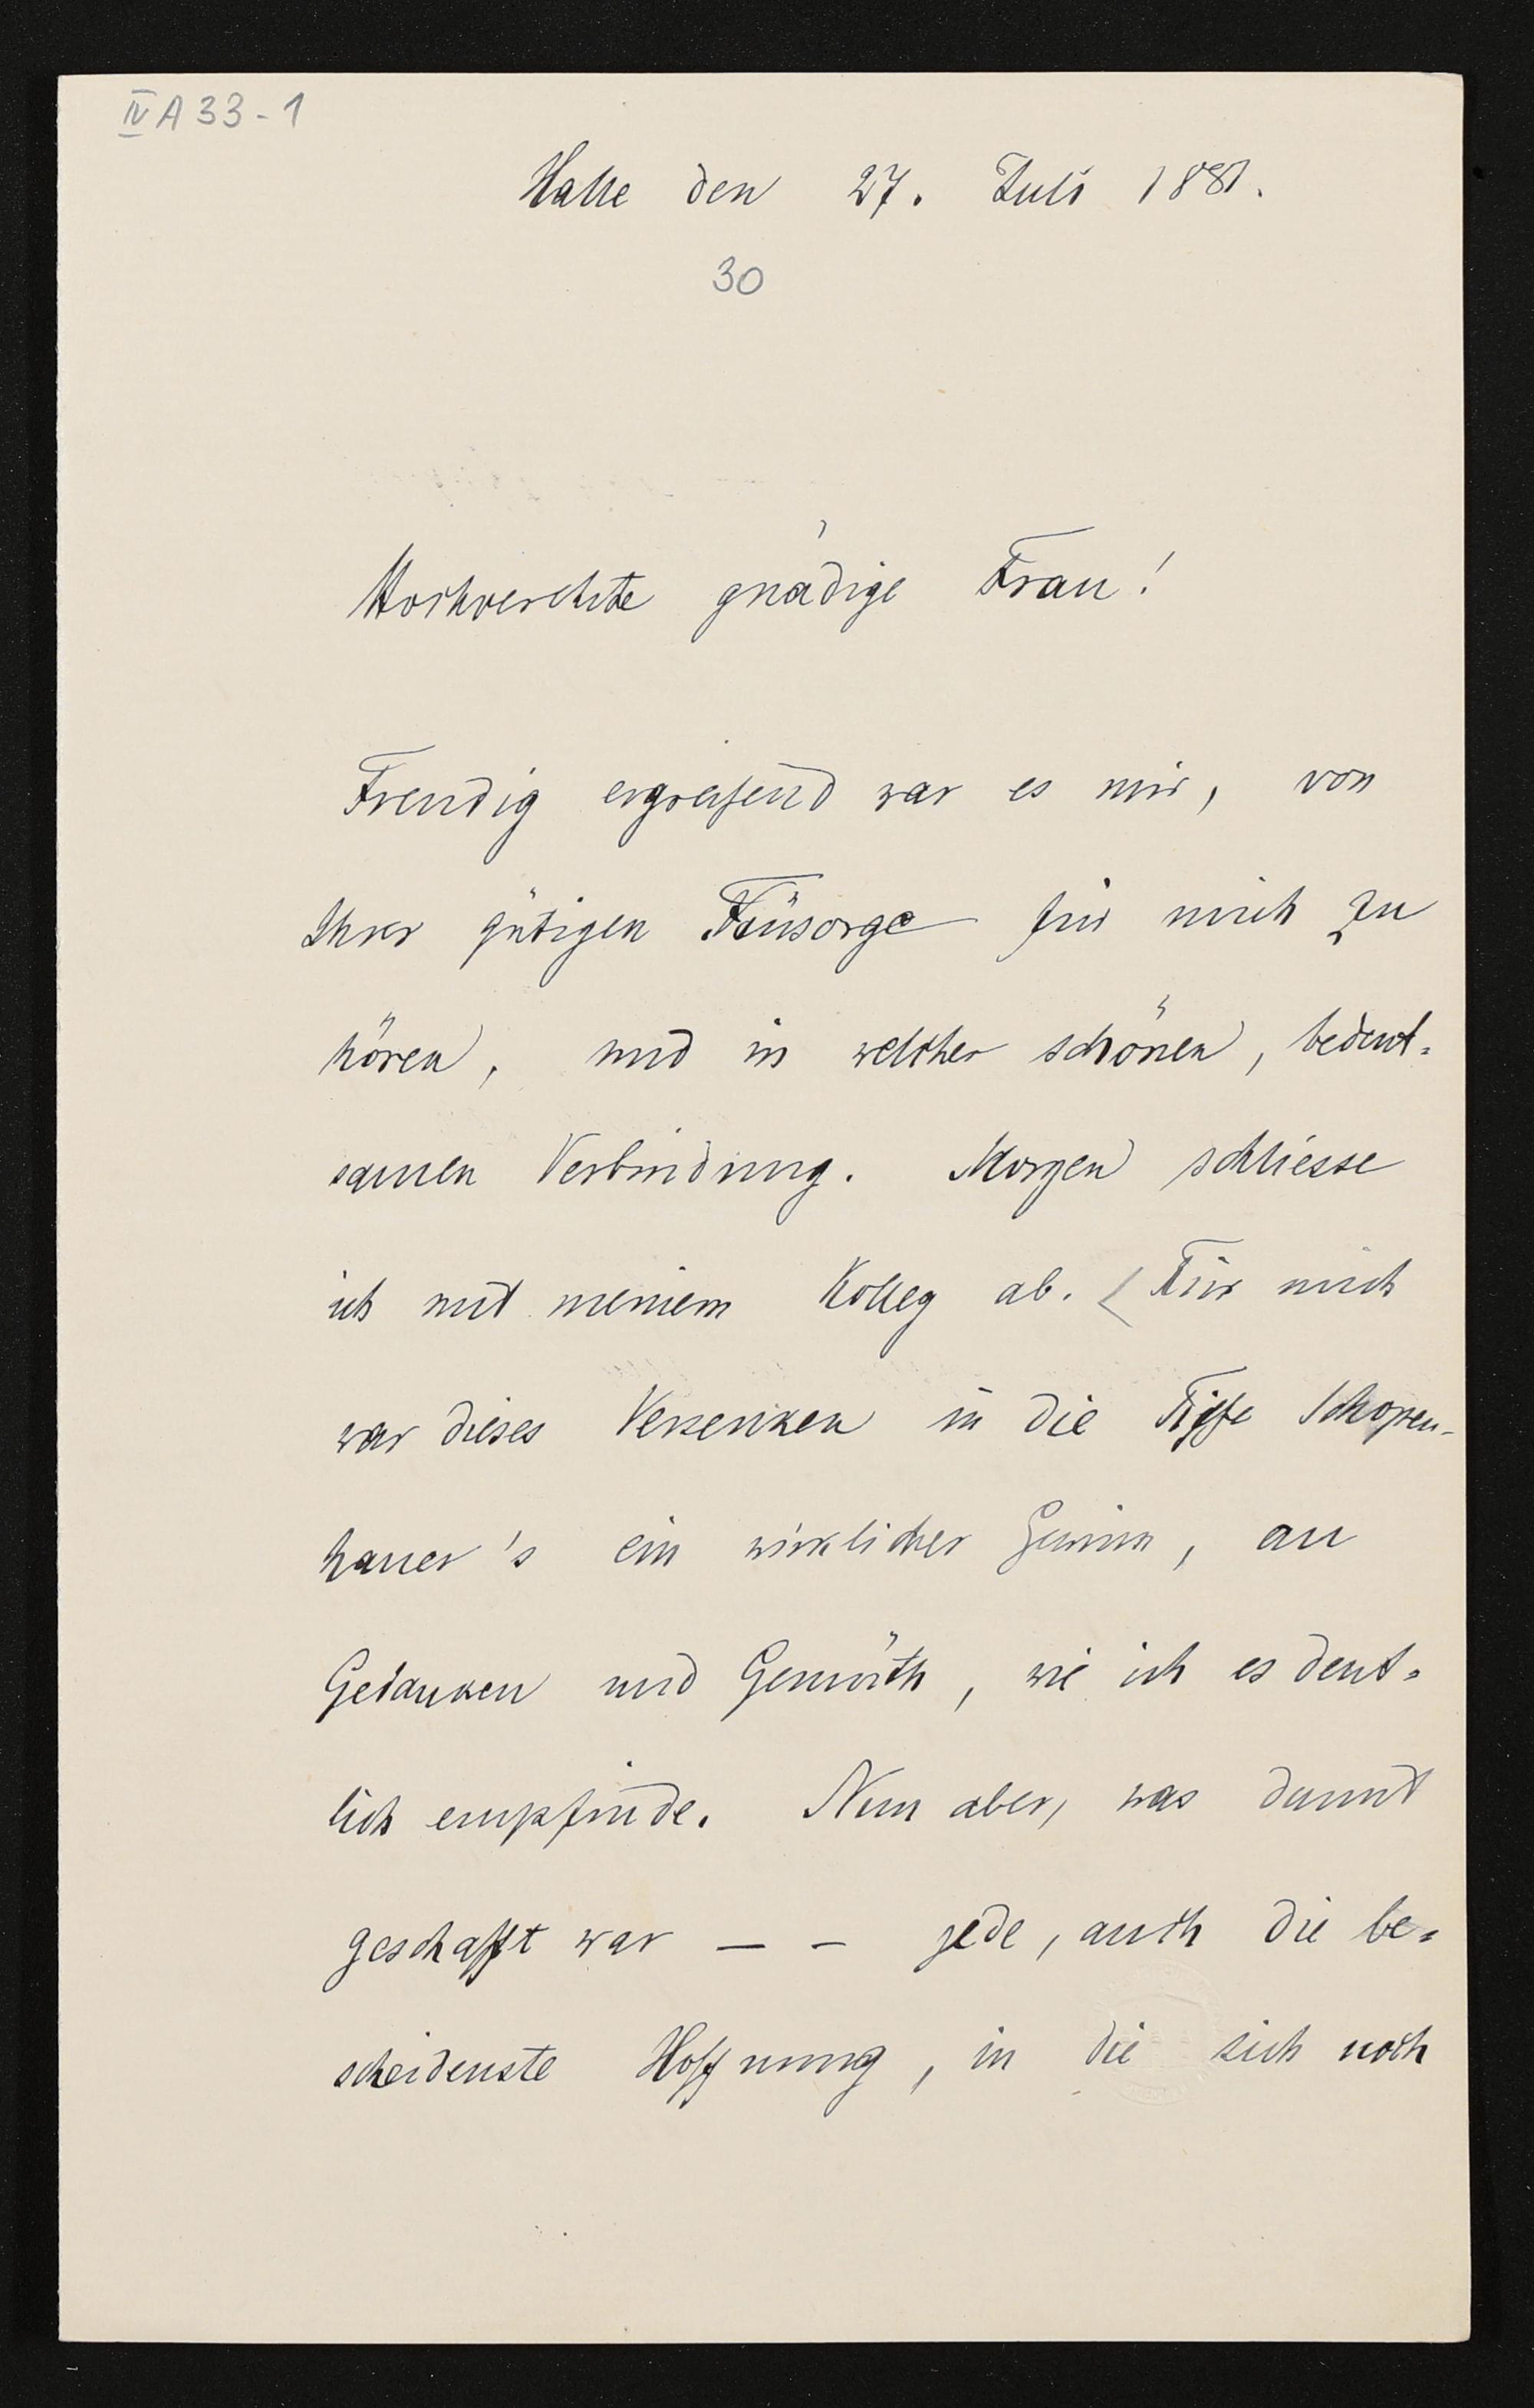 IV A 33-1
Halle den 27. Juli 1881.
30
Hochverehrte gnädige Frau!
Freudig ergreifend war es mir, von
Ihrer gütigen Fürsorge für mich zu
hören, und in welcher schönen, bedeut=
samen Verbindung. Morgen schliesse
ich mit meinem Kolleg ab. Für mich
war dieses Versenken in die Tiefe Schopen-
hauer's ein wirklicher Gewinn, an
Gedanken und Gemüth, wie ich es deut=
lich empfinde. Nun aber, was damit
geschafft war — — jede, auch die be=
scheidenste Hoffnung, in die sich noch